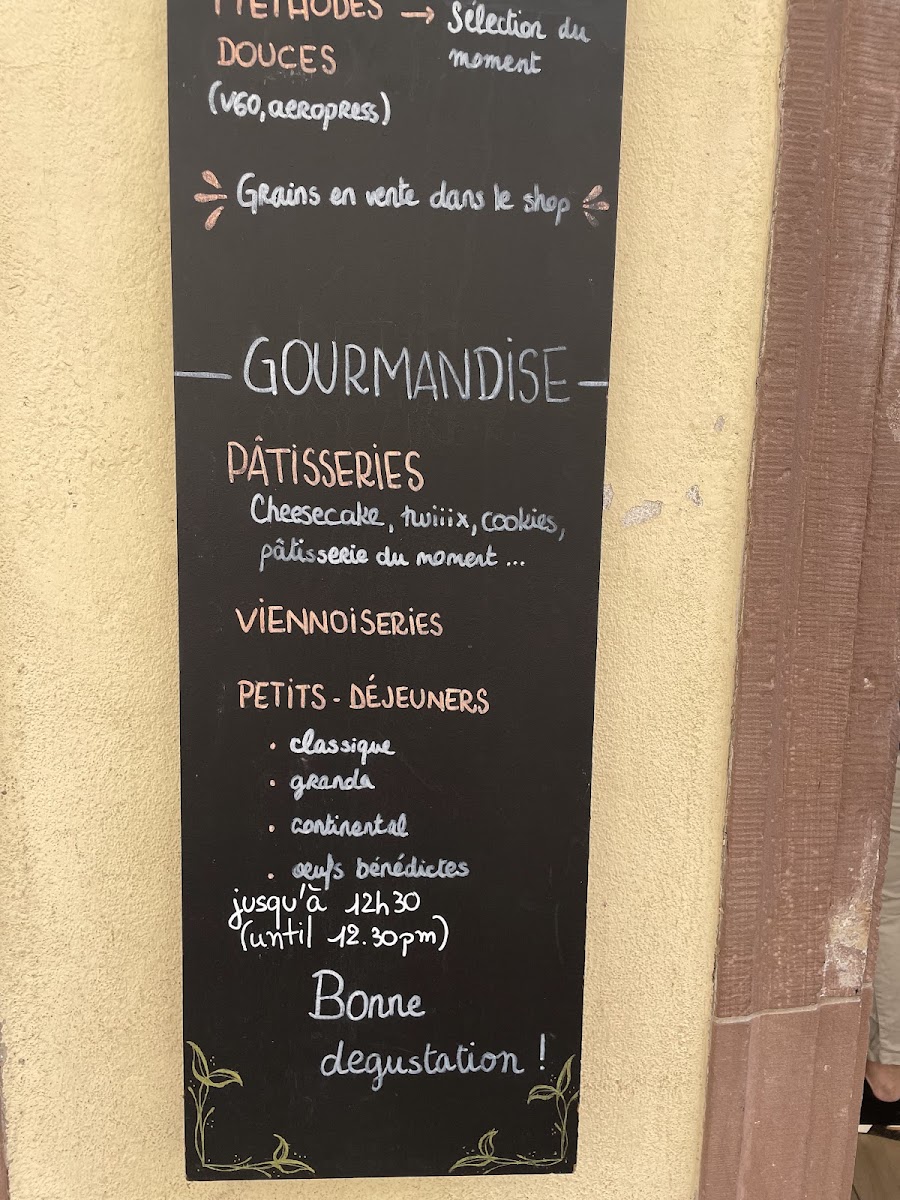 MÉTHODES → Sélection du
DOUCES moment
(V60, aeropress)
Grains en vente dans le shop
GOURMANDISE
PÂTISSERIES
Cheesecake, twiiix, cookies,
pâtisserie du moment...
VIENNOISERIES
PETITS-DÉJEUNERS
• classique
• granda
• continental
• œufs bénédictes
jusqu'à 12h30
(until 12.30pm)
Bonne
degustation !